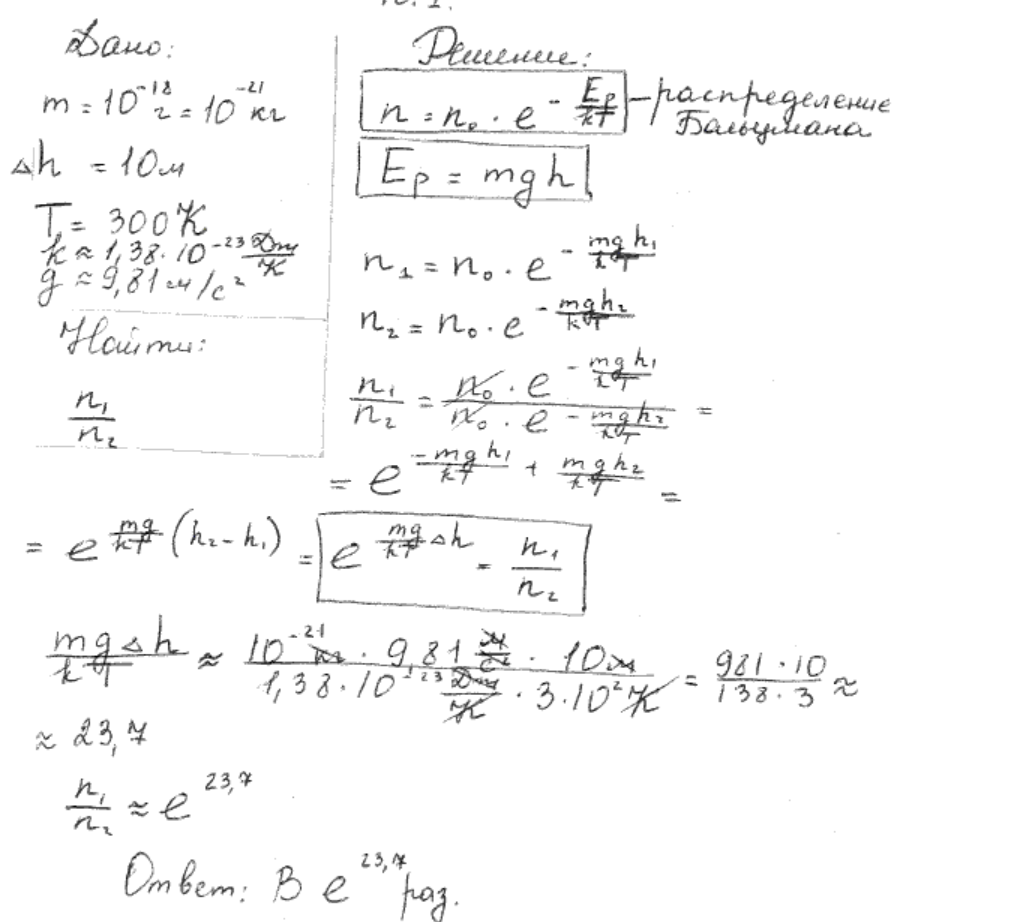 № 1.
Дано:
m = 10⁻¹⁸ г = 10⁻²¹ кг
Δh = 10 м
T = 300 К
k ≈ 1,38·10⁻²³ Дж/К
g ≈ 9,81 м/с²
Найти:
n₁/n₂
Решение:
n = n₀ · e^(-Eₚ/kT) – распределение
Больцмана
Eₚ = mgh
n₁ = n₀ · e^(-mgh₁/kT)
n₂ = n₀ · e^(-mgh₂/kT)
n₁/n₂ = (n₀ · e^(-mgh₁/kT))/(n₀ · e^(-mgh₂/kT)) =
= e^(-mgh₁/kT + mgh₂/kT) =
= e^(mg/kT (h₂ - h₁)) = e^(mg/kT Δh) = n₁/n₂
mgΔh/kT ≈ (10⁻²¹ кг · 9,81 м/с² · 10 м)/(1,38·10⁻²³ Дж/К · 3·10² К) = (981·10)/(138·3) ≈
≈ 23,7
n₁/n₂ ≈ e^23,7
Ответ: В e^23,7 раз.